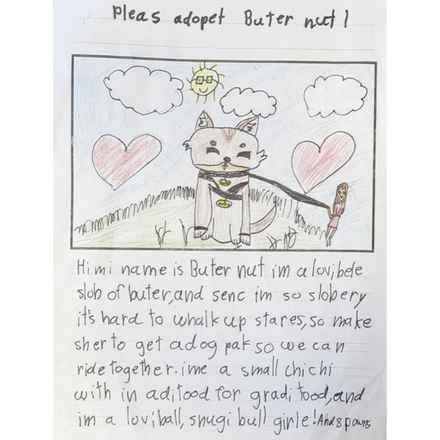 Pleas adopet Buter nut!
Hi mi name is Buter nut im a lovibele
slob of buter, and senc im so slobery
it's hard to whalk up stares, so make
sher to get a dog pak so we can
ride together. ime a small chichi
with in aditood for graditood, and
im a loviball, snugi bull girle! And 8 pouns